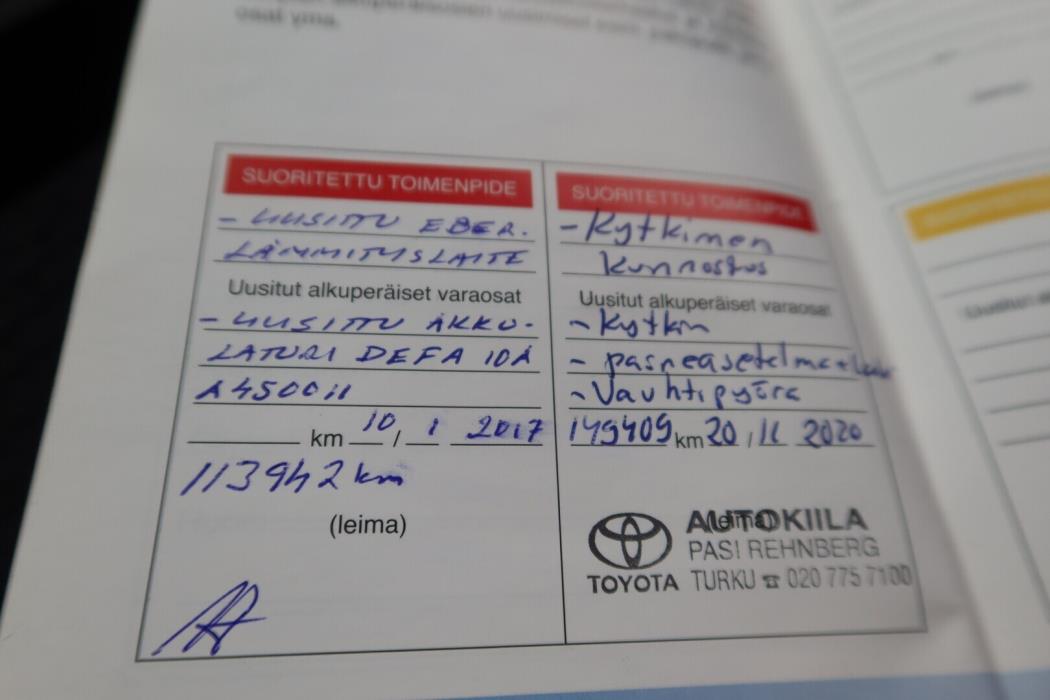 osat yms.
SUORITETTU TOIMENPIDE
- UUSITTU EBER.
LÄMMITYSLAITE
Uusitut alkuperäiset varaosat
- UUSITTU AKKU-
LATURI DEFA 10A
A450011
km 10 / 1 2017
113942 km
(leima)
SUORITETTU TOIMENPIDE
- Kytkimen
kunnostus
Uusitut alkuperäiset varaosat
- Kytkin
- paineasetelma +
- Vauhtipyörä
149409 km 20 / 11 2020
(leima)
AUTOKIILA
PASI REHNBERG
TOYOTA TURKU ☎ 020 775 7100